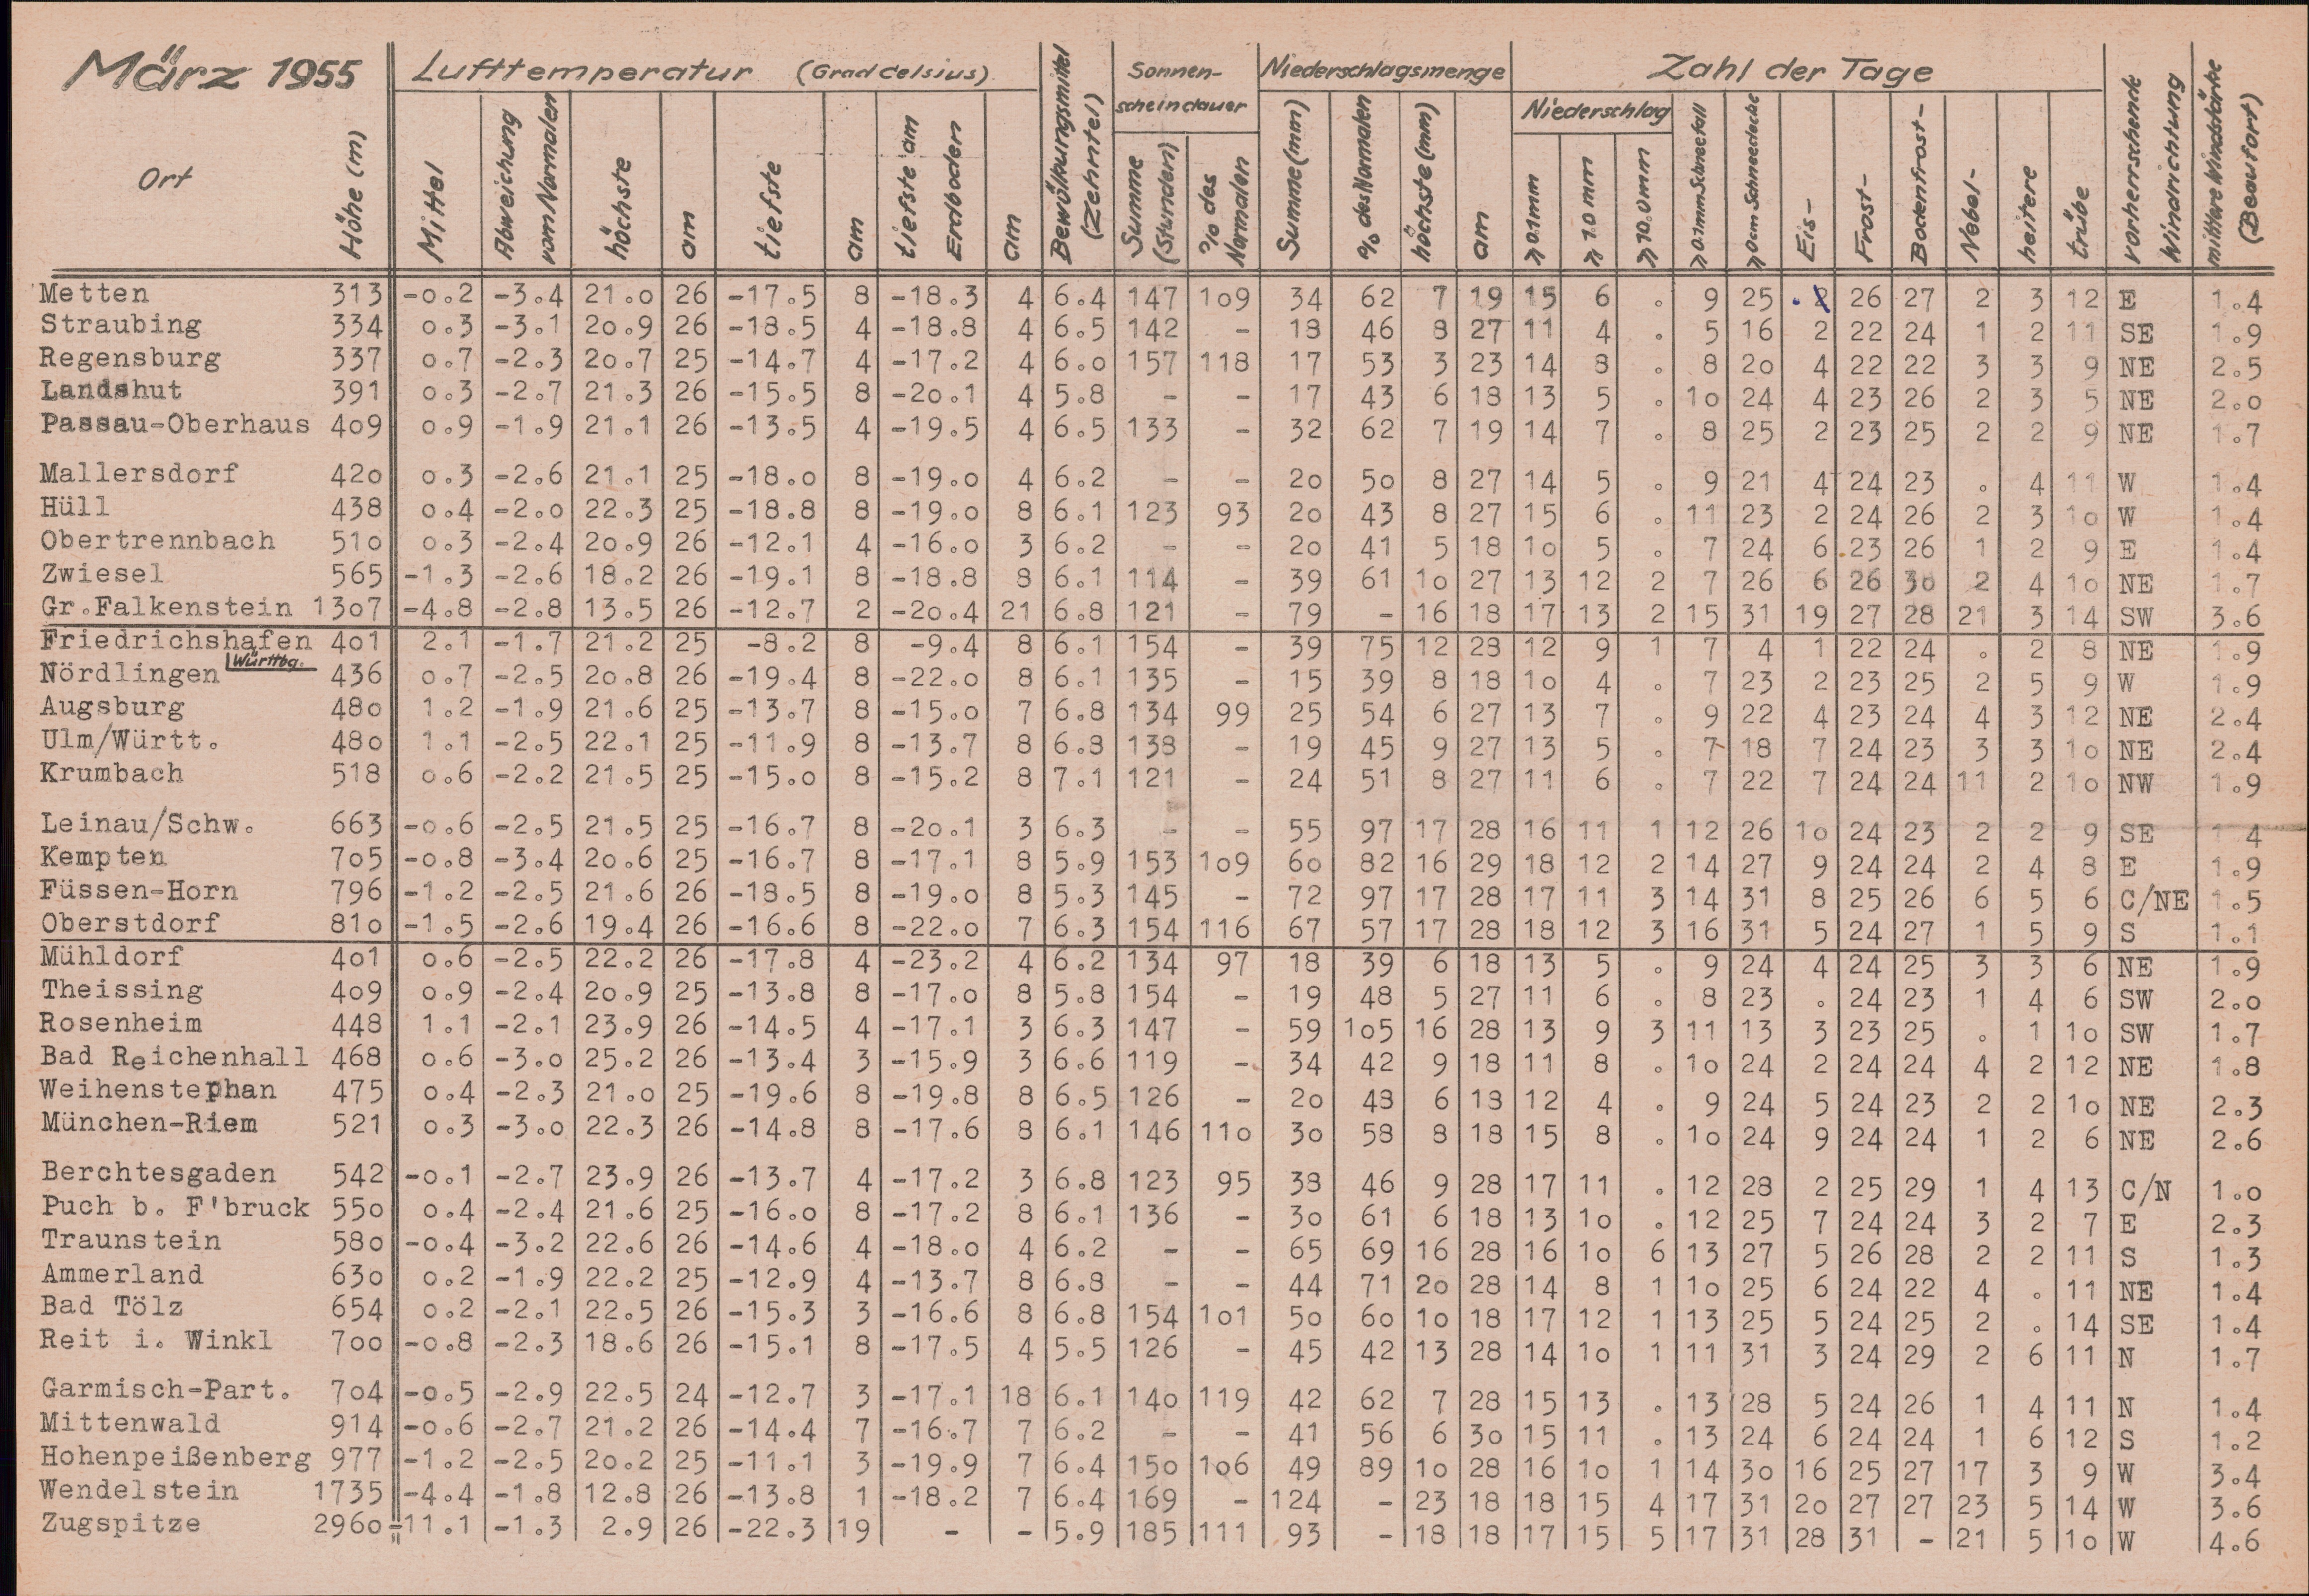 März 1955
Lufttemperatur (Grad Celsius)
Bewölkungsmittel (Zehntel)
Sonnenscheindauer
Niederschlagsmenge
Zahl der Tage
vorherrschende Windrichtung
mittlere Windstärke (Beaufort)
Niederschlag
Ort Höhe (m) Mittel Abweichung vom Normalen höchste am tiefste am tiefste am Erdboden am Summe (Stunden) % des Normalen Summe (mm) % des Normalen höchste (mm) am ≥ 0.1 mm ≥ 1.0 mm ≥ 10.0 mm ≥ 0.1 mm Schneefall ≥ 0 cm Schneedecke Eis- Frost- Bodenfrost- Nebel- heitere trübe
Metten 313 -0.2 -3.4 21.0 26 -17.5 8 -18.3 4 6.4 147 109 34 62 7 19 15 6 . 9 25 . 26 27 2 3 12 E 1.4
Straubing 334 0.3 -3.1 20.9 26 -18.5 4 -18.8 4 6.5 142 - 18 46 8 27 11 4 . 5 16 2 22 24 1 2 11 SE 1.9
Regensburg 337 0.7 -2.3 20.7 25 -14.7 4 -17.2 4 6.0 157 118 17 53 3 23 14 8 . 8 20 4 22 22 3 3 9 NE 2.5
Landshut 391 0.3 -2.7 21.3 26 -15.5 8 -20.1 4 5.8 - - 17 43 6 18 13 5 . 10 24 4 23 26 2 3 5 NE 2.0
Passau-Oberhaus 409 0.9 -1.9 21.1 26 -13.5 4 -19.5 4 6.5 133 - 32 62 7 19 14 7 . 8 25 2 23 25 2 2 9 NE 1.7
Mallersdorf 420 0.3 -2.6 21.1 25 -18.0 8 -19.0 4 6.2 - - 20 50 8 27 14 5 . 9 21 4 24 23 . 4 11 W 1.4
Hüll 438 0.4 -2.0 22.3 25 -18.8 8 -19.0 8 6.1 123 93 20 43 8 27 15 6 . 11 23 2 24 26 2 3 10 W 1.4
Obertrennbach 510 0.3 -2.4 20.9 26 -12.1 4 -16.0 3 6.2 - - 20 41 5 18 10 5 . 7 24 6 23 26 1 2 9 E 1.4
Zwiesel 565 -1.3 -2.6 18.2 26 -19.1 8 -18.8 8 6.1 114 - 39 61 10 27 13 12 2 7 26 6 26 30 2 4 10 NE 1.7
Gr.Falkenstein 1307 -4.8 -2.8 13.5 26 -12.7 2 -20.4 21 6.8 121 - 79 - 16 18 17 13 2 15 31 19 27 28 21 3 14 SW 3.6
Friedrichshafen 401 2.1 -1.7 21.2 25 -8.2 8 -9.4 8 6.1 154 - 39 75 12 28 12 9 1 7 4 1 22 24 . 2 8 NE 1.9
Württbg.
Nördlingen 436 0.7 -2.5 20.8 26 -19.4 8 -22.0 8 6.1 135 - 15 39 8 18 10 4 . 7 23 2 23 25 2 5 9 W 1.9
Augsburg 480 1.2 -1.9 21.6 25 -13.7 8 -15.0 7 6.8 134 99 25 54 6 27 13 7 . 9 22 4 23 24 4 3 12 NE 2.4
Ulm/Württ. 480 1.1 -2.5 22.1 25 -11.9 8 -13.7 8 6.8 138 - 19 45 9 27 13 5 . 7 18 7 24 23 3 3 10 NE 2.4
Krumbach 518 0.6 -2.2 21.5 25 -15.0 8 -15.2 8 7.1 121 - 24 51 8 27 11 6 . 7 22 7 24 24 11 2 10 NW 1.9
Leinau/Schw. 663 -0.6 -2.5 21.5 25 -16.7 8 -20.1 3 6.3 - - 55 97 17 28 16 11 1 12 26 10 24 23 2 2 9 SE 1 4
Kempten 705 -0.8 -3.4 20.6 25 -16.7 8 -17.1 8 5.9 153 109 60 82 16 29 18 12 2 14 27 9 24 24 2 4 8 E 1.9
Füssen-Horn 796 -1.2 -2.5 21.6 26 -18.5 8 -19.0 8 5.3 145 - 72 97 17 28 17 11 3 14 31 8 25 26 6 5 6 C/NE 1.5
Oberstdorf 810 -1.5 -2.6 19.4 26 -16.6 8 -22.0 7 6.3 154 116 67 57 17 28 18 12 3 16 31 5 24 27 1 5 9 S 1.1
Mühldorf 401 0.6 -2.5 22.2 26 -17.8 4 -23.2 4 6.2 134 97 18 39 6 18 13 5 . 9 24 4 24 25 3 3 6 NE 1.9
Theissing 409 0.9 -2.4 20.9 25 -13.8 8 -17.0 8 5.8 154 - 19 48 5 27 11 6 . 8 23 . 24 23 1 4 6 SW 2.0
Rosenheim 448 1.1 -2.1 23.9 26 -14.5 4 -17.1 3 6.3 147 - 59 105 16 28 13 9 3 11 13 3 23 25 . 1 10 SW 1.7
Bad Reichenhall 468 0.6 -3.0 25.2 26 -13.4 3 -15.9 3 6.6 119 - 34 42 9 18 11 8 . 10 24 2 24 24 4 2 12 NE 1.8
Weihenstephan 475 0.4 -2.3 21.0 25 -19.6 8 -19.8 8 6.5 126 - 20 48 6 18 12 4 . 9 24 5 24 23 2 2 10 NE 2.3
München-Riem 521 0.3 -3.0 22.3 26 -14.8 8 -17.6 8 6.1 146 110 30 58 8 18 15 8 . 10 24 9 24 24 1 2 6 NE 2.6
Berchtesgaden 542 -0.1 -2.7 23.9 26 -13.7 4 -17.2 3 6.8 123 95 38 46 9 28 17 11 . 12 28 2 25 29 1 4 13 C/N 1.0
Puch b. F'bruck 550 0.4 -2.4 21.6 25 -16.0 8 -17.2 8 6.1 136 - 30 61 6 18 13 10 . 12 25 7 24 24 3 2 7 E 2.3
Traunstein 580 -0.4 -3.2 22.6 26 -14.6 4 -18.0 4 6.2 - - 65 69 16 28 16 10 6 13 27 5 26 28 2 2 11 S 1.3
Ammerland 630 0.2 -1.9 22.2 25 -12.9 4 -13.7 8 6.8 - - 44 71 20 28 14 8 1 10 25 6 24 22 4 . 11 NE 1.4
Bad Tölz 654 0.2 -2.1 22.5 26 -15.3 3 -16.6 8 6.8 154 101 50 60 10 18 17 12 1 13 25 5 24 25 2 . 14 SE 1.4
Reit i. Winkl 700 -0.8 -2.3 18.6 26 -15.1 8 -17.5 4 5.5 126 - 45 42 13 28 14 10 1 11 31 3 24 29 2 6 11 N 1.7
Garmisch-Part. 704 -0.5 -2.9 22.5 24 -12.7 3 -17.1 18 6.1 140 119 42 62 7 28 15 13 . 13 28 5 24 26 1 4 11 N 1.4
Mittenwald 914 -0.6 -2.7 21.2 26 -14.4 7 -16.7 7 6.2 - - 41 56 6 30 15 11 . 13 24 6 24 24 1 6 12 S 1.2
Hohenpeißenberg 977 -1.2 -2.5 20.2 25 -11.1 3 -19.9 7 6.4 150 106 49 89 10 28 16 10 1 14 30 16 25 27 17 3 9 W 3.4
Wendelstein 1735 -4.4 -1.8 12.8 26 -13.8 1 -18.2 7 6.4 169 - 124 - 23 18 18 15 4 17 31 20 27 27 23 5 14 W 3.6
Zugspitze 2960 -11.1 -1.3 2.9 26 -22.3 19 - - 5.9 185 111 93 - 18 18 17 15 5 17 31 28 31 - 21 5 10 W 4.6